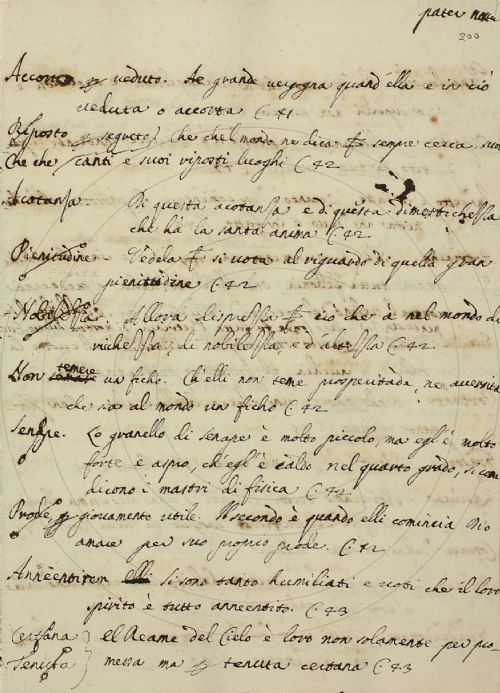 pater nostr
200
Accorto per veduto. Ae grande vergogna quand'ella e in ciò
veduta o accorta C. 41
Risposto per segreto) che chel mondo ne dica sempre cerca suoi
Che che canti e suoi riposti luoghi C. 42
Acotansa. Di questa acotansa e di questa dimestichessa
che hà la santa anima C. 42.
Pienitudine. Vedela si vota al riguardo di quella gran
pienitudine C. 42
Nobilessa. Allora dispressa ciò che è nel mondo di
richessa, di nobilessa, e d'altessa C. 42
Non temere un ficho. Ch'elli non teme prosperitàde, ne aversità
che sia al mondo un ficho C. 42
Senape. Lo granello di senape è molto piccolo, ma egl'è molto
forte e aspro, ch'egl'è caldo nel quarto grado, si com
dicono i mastri di fisica C. 42
Prode, per giovamento utile. Il secondo è quando elli comincia Dio
amare per suo proprio prode. C. 42
Anneentire si sono tanto humiliati e voti che il loro
spirito è tutto anneentito. C. 43
Certana el Reame del Cielo è loro non solamente per pro-
messa ma per tenuta certana C. 43